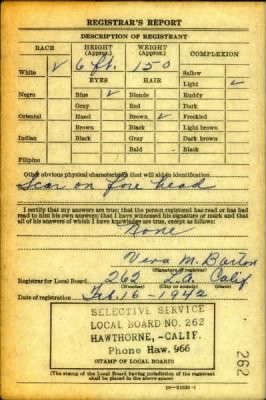 REGISTRAR'S REPORT
DESCRIPTION OF REGISTRANT
RACE HEIGHT (Approx.) WEIGHT (Approx.) COMPLEXION
White ✓ 6 ft. 150 Sallow
EYES HAIR Light ✓
Negro Blue ✓ Blonde Ruddy
Gray Red Dark
Oriental Hazel Brown ✓ Freckled
Brown Black Light brown
Indian Black Gray Dark brown
Bald Black
Filipino
Other obvious physical characteristics that will aid in identification
Scar on fore head
I certify that my answers are true; that the person registered has read or has had
read to him his own answers; that I have witnessed his signature or mark and that
all of his answers of which I have knowledge are true, except as follows:
None
Vera M. Barton
(Signature of registrar)
Registrar for Local Board 262 L.A. Calif
(Number) (City or county) (State)
Date of registration Feb. 16-1942
SELECTIVE SERVICE
LOCAL BOARD NO. 262
HAWTHORNE, -CALIF.
Phone Haw. 966
(STAMP OF LOCAL BOARD)
262
(The stamp of the Local Board having jurisdiction of the registrant
shall be placed in the above space.)